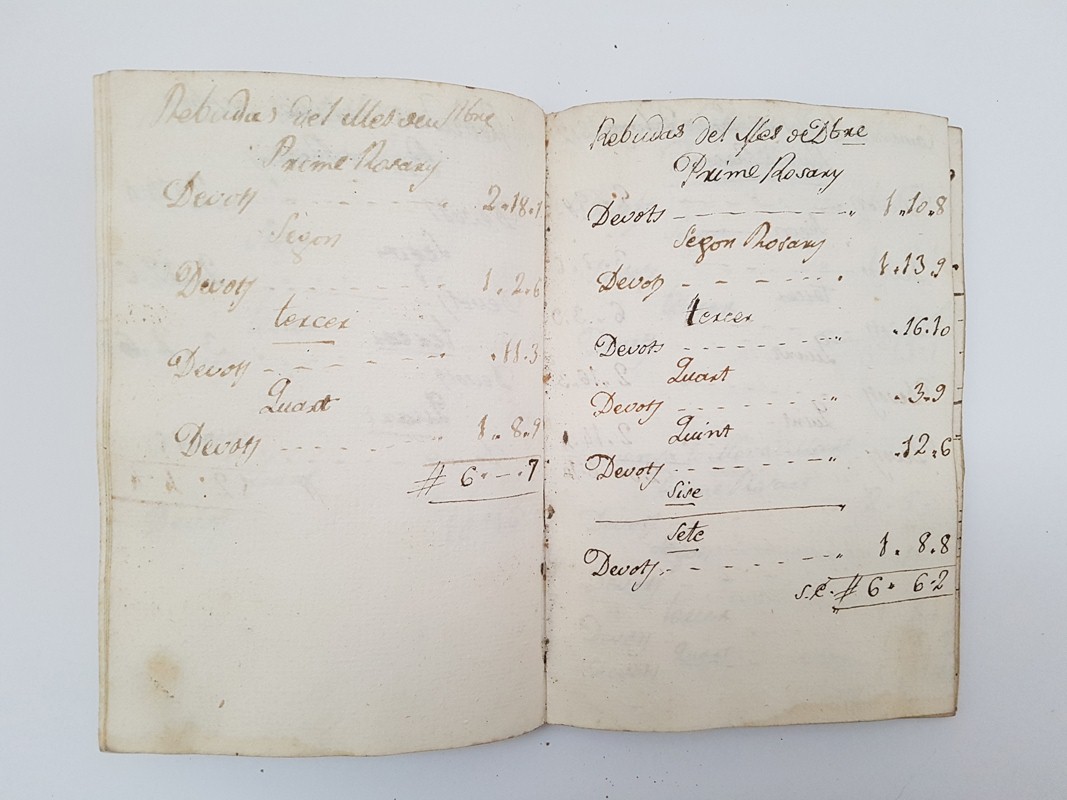 Rebudas del Mes de 9bre
Prime Rosary
Devots 2.18.1
Segon
Devots 1.2.6
tercer
Devots .11.3
Quart
Devots 1.8.9
# 6.—.7
Rebudas del Mes de Dbre
Prime Rosary
Devots 1.10.8
Segon Rosary
Devots 1.13.9
tercer
Devots .16.10
Quart
Devots .3.9
Quint
Devots .12.6
Sise
Sete
Devots 1.8.8
s.e. # 6.6.2